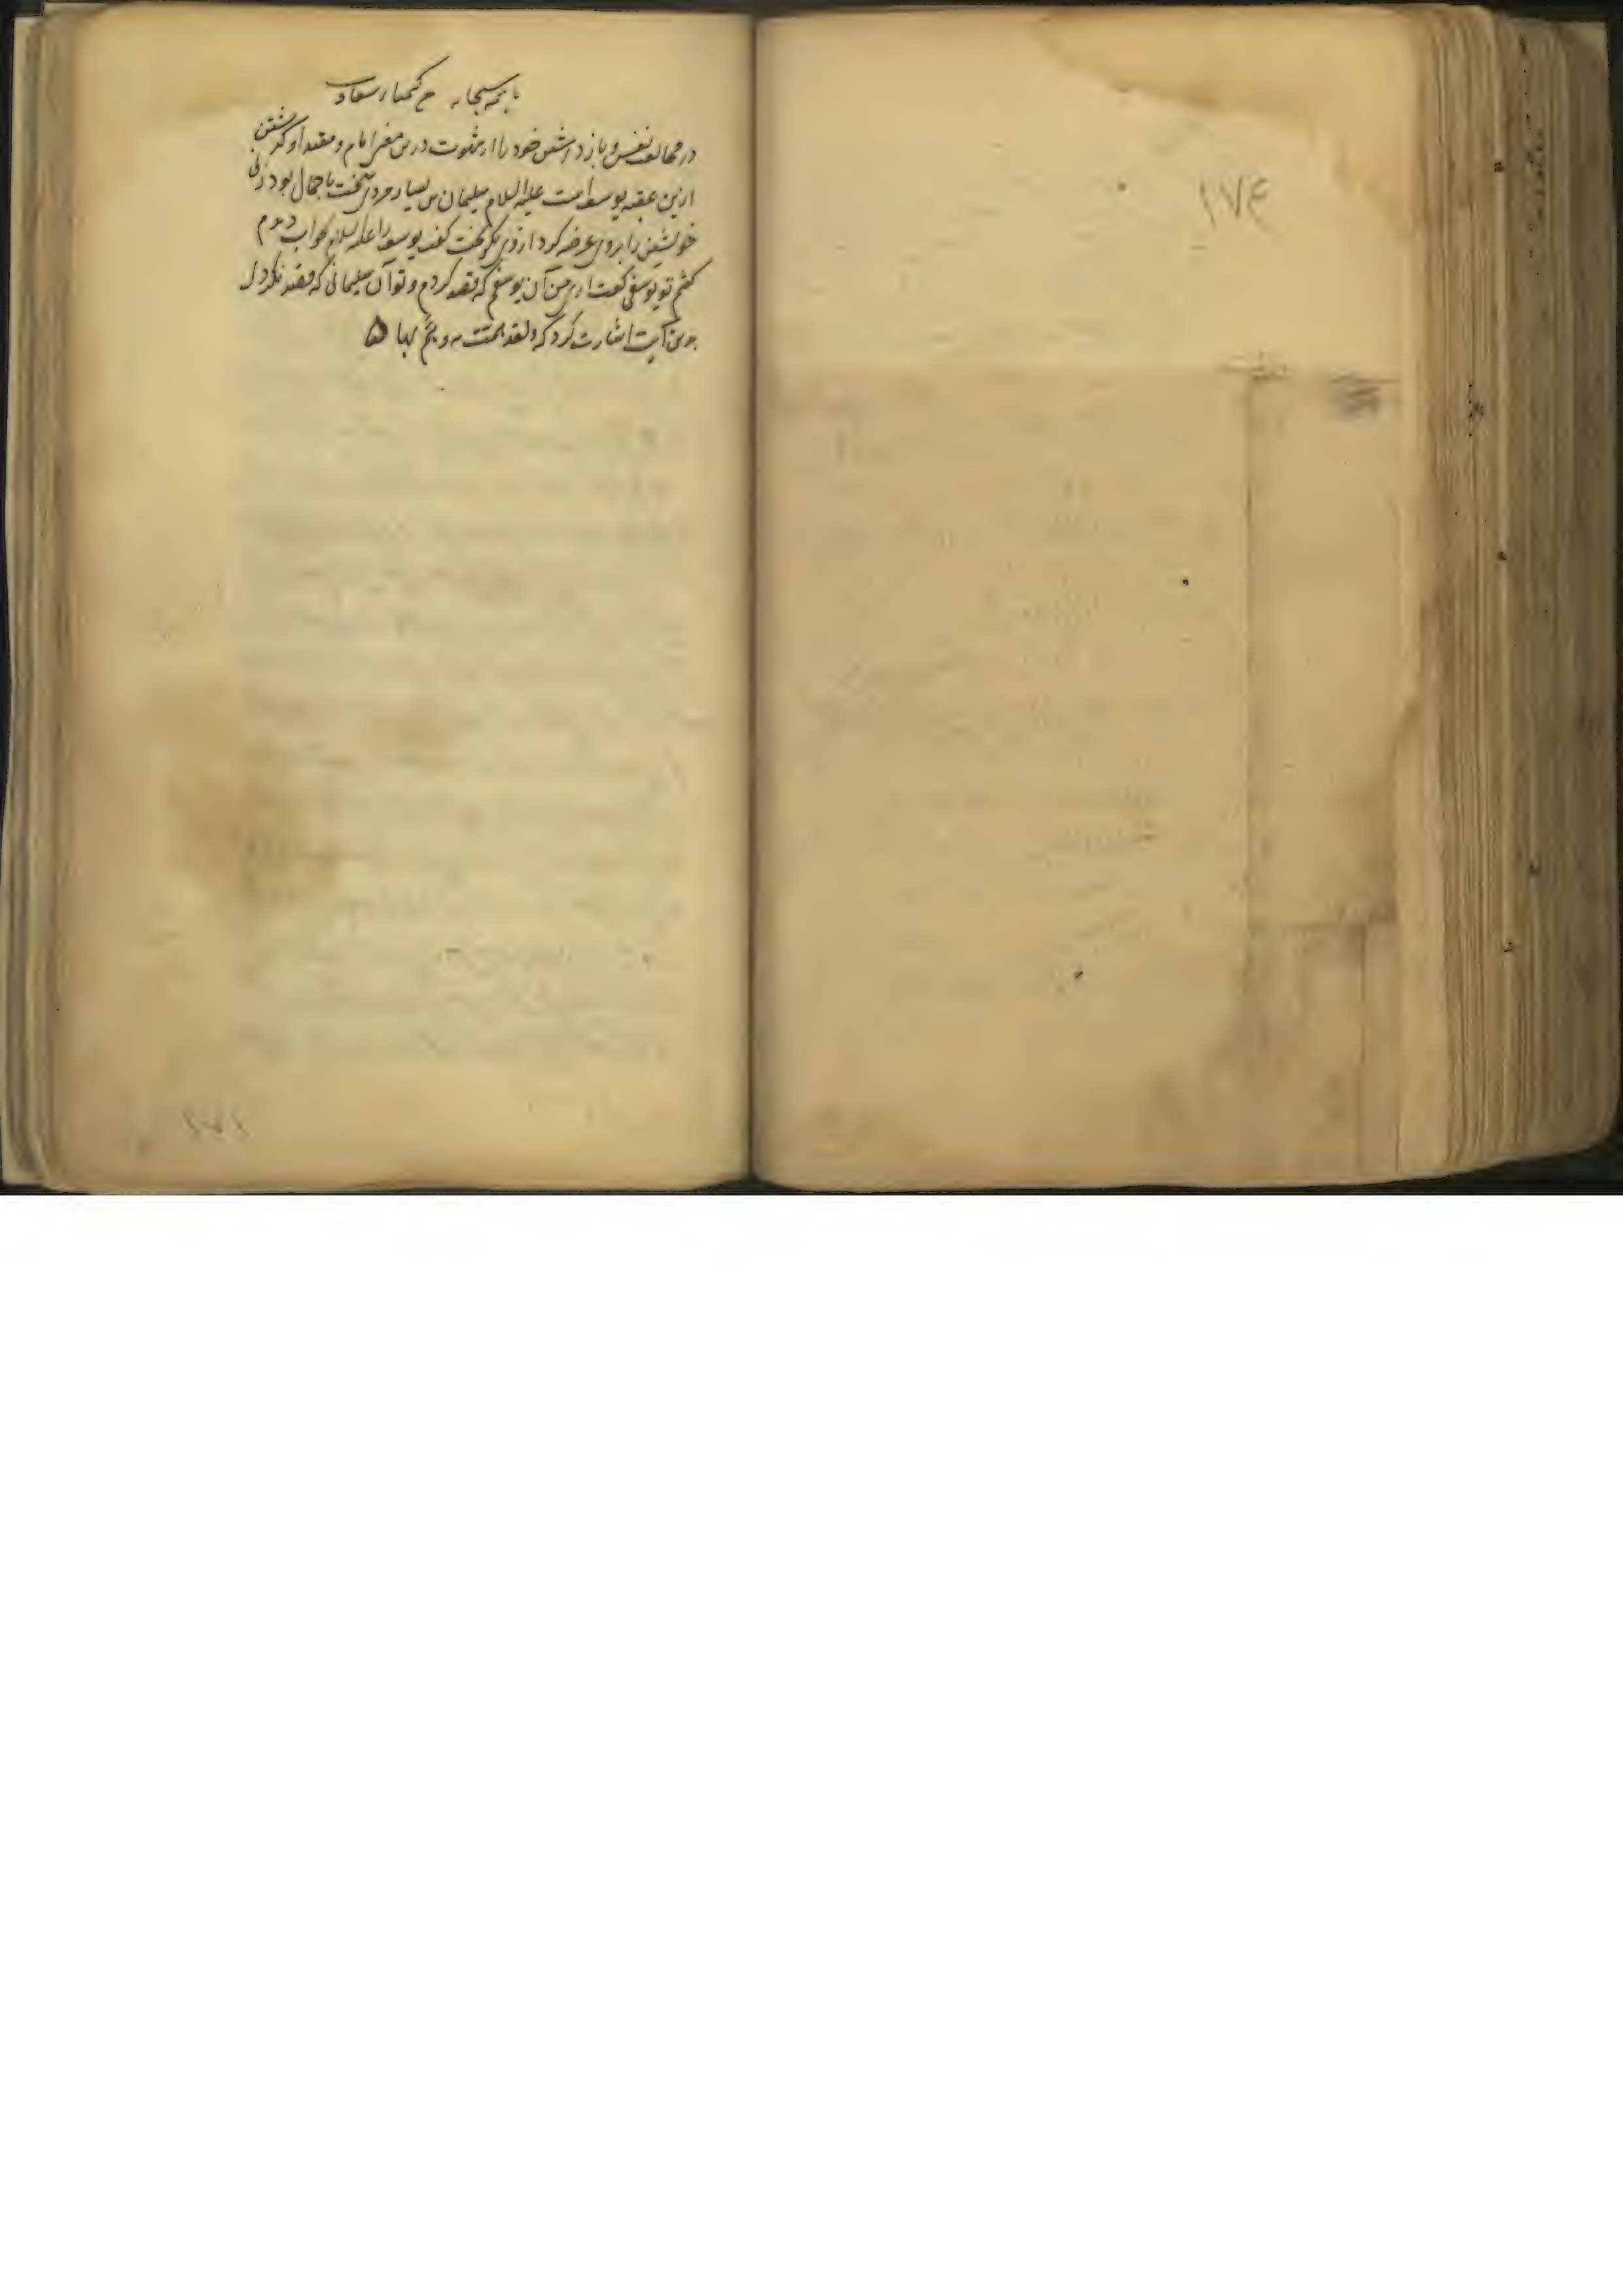 باسمه سبحانه من کیمیاء سعادت
در مخالفت نفس و باز داشتن خود را از شهوت درین معنی امام و مقتدا و گذشتن
ازین عقبه یوسف است علیه السلام سلیمان بن بسیار مردی سخت با جمال بود زنی
خویشتن را بروی عرضه کرد از وی بگریخت گفت یوسف را علیه السلام بخواب دیدم
گفتم تو یوسفی گفت اری من آن یوسفم که قصد کردم و تو آن سلیمانی که قصد نکردی
بدین آیت اشارت کرد که ولقد همت به وهم بها
۱۷۴
۱۷۱